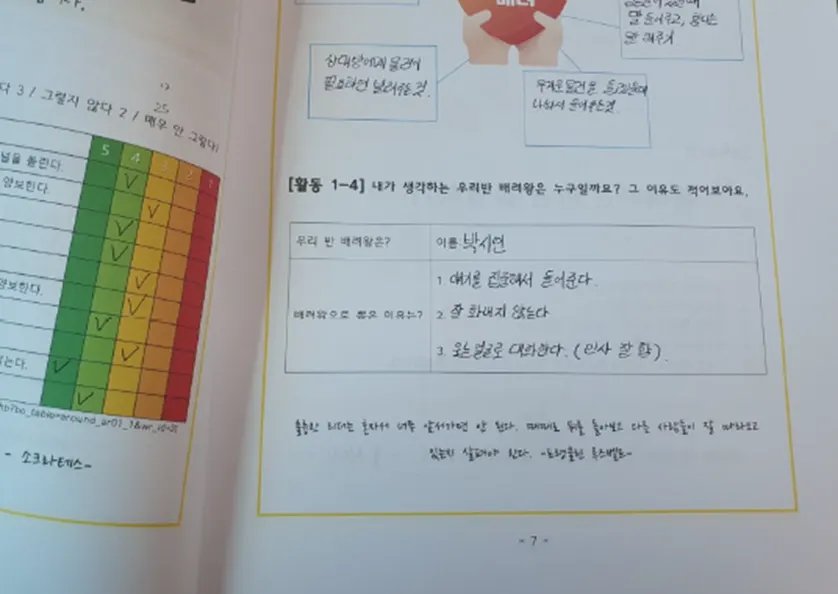 다 3 / 그렇지 않다 2 / 매우 안 그렇다1
25
5 4 3 2 1
널을 돌린다.
양보한다.
양보한다.
는다.
- 소크라테스-
배려
말 들어주고,
말 해주기
상대방에게 물건이
필요하면 빌려주는 것.
무거운 물건을
나눠서 들어주는 것.
[활동 1-4] 내가 생각하는 우리반 배려왕은 누구일까요? 그 이유도 적어보아요.
우리 반 배려왕은?
이름: 박시연
배려왕으로 뽑은 이유는?
1. 얘기를 집중해서 들어준다.
2. 잘 화내지 않는다
3. 웃는얼굴로 대화한다. (인사 잘 함).
훌륭한 리더는 혼자서 너무 앞서가면 안 된다. 때때로 뒤를 돌아보고 다른 사람들이 잘 따라오고
있는지 살펴야 한다. -프랭클린 루스벨트-
- 7 -